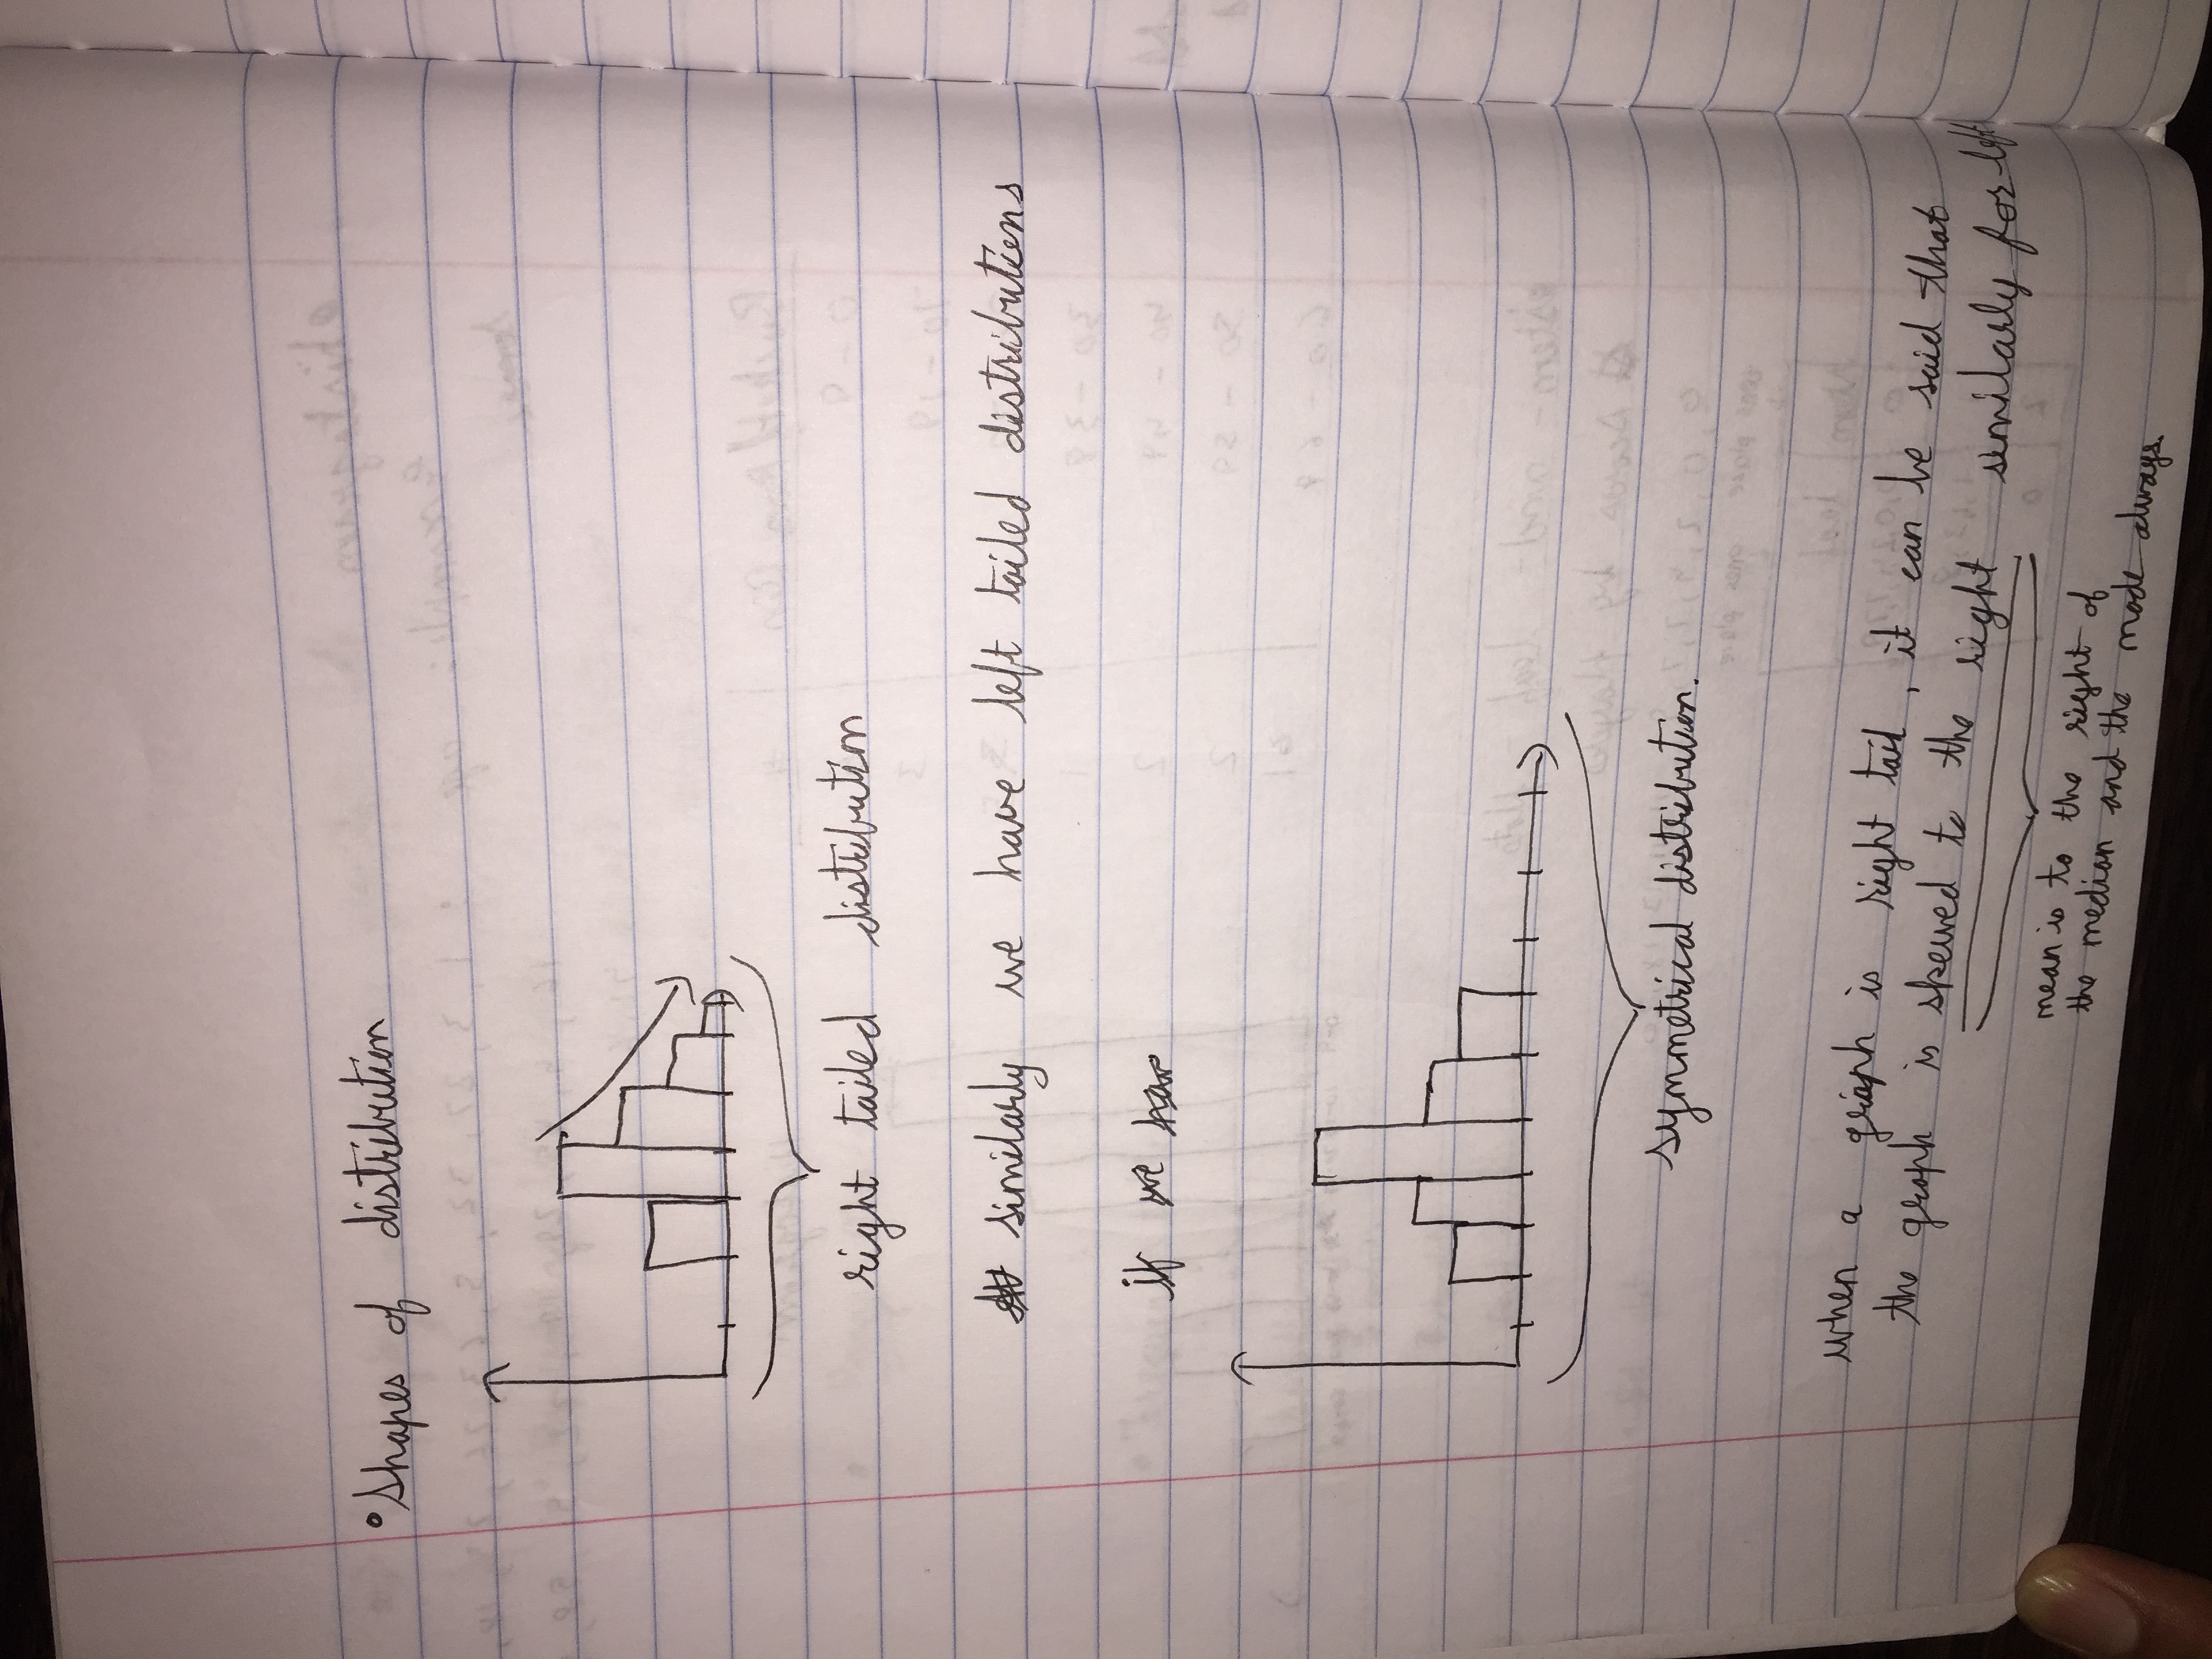 • Shapes of distribution
right tailed distribution
similarly we have left tailed distributions
if we hav
symmetrical distribution.
when a graph is right tail, it can be said that
the graph is skewed to the right similarly for left
mean is to the right of
the median and the mode always.